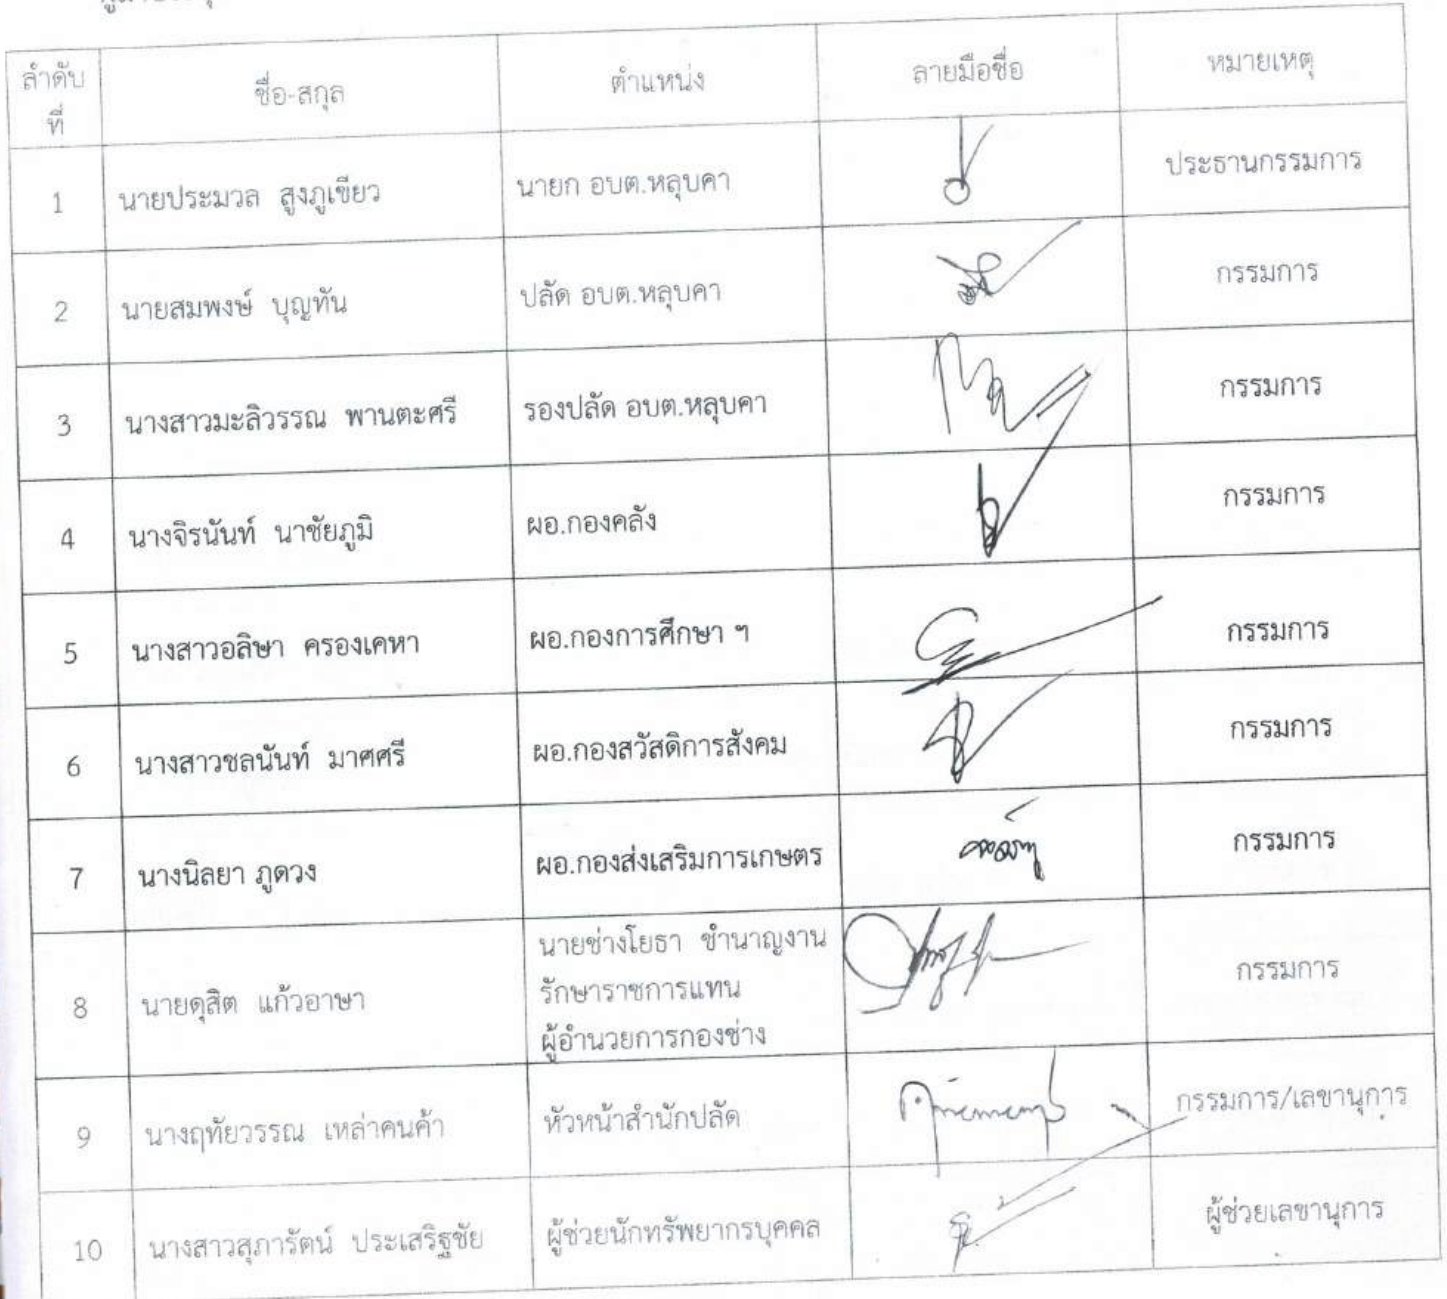 ลำดับ
ที่
ชื่อ-สกุล
ตำแหน่ง
ลายมือชื่อ
หมายเหตุ
1
นายประมวล สูงภูเขียว
นายก อบต.หลุบคา
ประธานกรรมการ
2
นายสมพงษ์ บุญทัน
ปลัด อบต.หลุบคา
กรรมการ
3
นางสาวมะลิวรรณ พานตะศรี
รองปลัด อบต.หลุบคา
กรรมการ
4
นางจิรนันท์ นาชัยภูมิ
ผอ.กองคลัง
กรรมการ
5
นางสาวอลิษา ครองเคหา
ผอ.กองการศึกษา ฯ
กรรมการ
6
นางสาวชลนันท์ มาศศรี
ผอ.กองสวัสดิการสังคม
กรรมการ
7
นางนิลยา ภูดวง
ผอ.กองส่งเสริมการเกษตร
กรรมการ
8
นายดุสิต แก้วอาษา
นายช่างโยธา ชำนาญงาน
รักษาราชการแทน
ผู้อำนวยการกองช่าง
กรรมการ
9
นางฤทัยวรรณ เหล่าคนค้า
หัวหน้าสำนักปลัด
กรรมการ/เลขานุการ
10
นางสาวสุภารัตน์ ประเสริฐชัย
ผู้ช่วยนักทรัพยากรบุคคล
ผู้ช่วยเลขานุการ